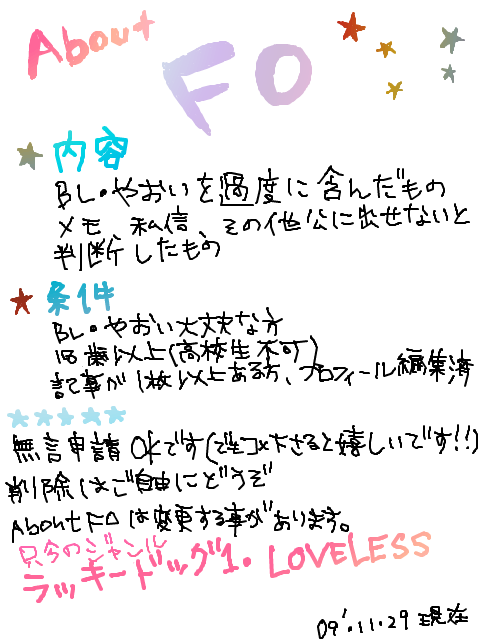 About
FO
内容
BL・やおいを過度に含んだもの
メモ、私信、その他公に出せないと
判断したもの
条件
BL・やおい大丈夫な方
18歳以上(高校生不可)
記事が1枚以上ある方、プロフィール編集済
無言申請OKです(でもコメ下さると嬉しいです!!)
削除はご自由にどうぞ
About FOは変更する事があります。
只今のジャンル
ラッキードッグ1・LOVELESS
09'.11.29 現在